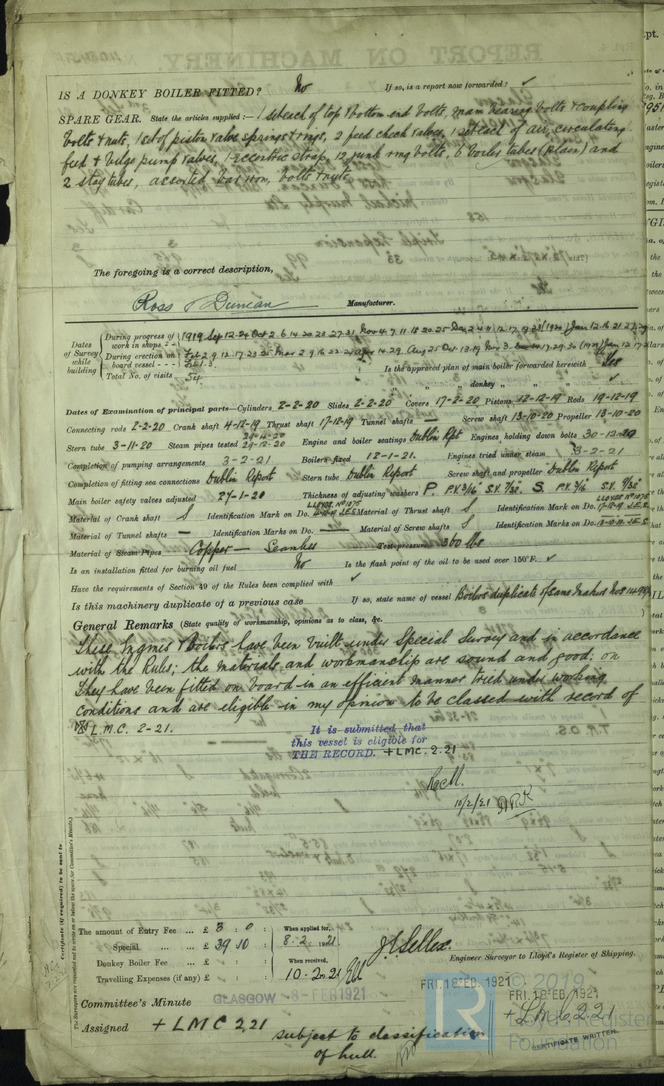 IS A DONKEY BOILER FITTED? No If so, is a report now forwarded? ✓
SPARE GEAR. State the articles supplied:— 1 set each of top & bottom end bolts, main bearing bolts & coupling
bolts & nuts, 1 set of piston & valve springs & rings, 2 feed check valves, 1 set each of air, circulating
feed & bilge pump valves, 1 eccentric strap, 12 junk ring bolts, 6 boiler tubes (plain) and
2 stay tubes, assorted bar iron, bolts & nuts
The foregoing is a correct description,
Ross & Duncan Manufacturer.
Dates of Survey while building
During progress of work in shops - - 1919 Sep 12. 24 Oct 2. 6. 14. 20. 23. 27. 31 Nov 4. 7. 11. 18. 20. 25 Dec 2. 4. 11. 12. 17. 19. 23 (1920) Jan 12. 16. 21. 27. 29
During erection on board vessel - - - Feb 2. 9. 12. 17. 23. 25 Mar 2. 9. 16. 14. 29. Aug 25 Oct 13. 19. Nov 3. (1921) Jan 12. 17
Feb 1. 3.
Total No. of visits 54 Is the approved plan of main boiler forwarded herewith Yes
" " " donkey " " " ✓
Dates of Examination of principal parts—Cylinders 2-2-20 Slides 2-2-20 Covers 17-2-20 Pistons 12-12-19 Rods 19-12-19
Connecting rods 2-2-20 Crank shaft 4-12-19 Thrust shaft 17-12-19 Tunnel shafts — Screw shaft 13-10-20 Propeller 13-10-20
Stern tube 3-11-20 Steam pipes tested 29-12-20 Engine and boiler seatings Dublin Rpt Engines holding down bolts 30-12-20
Completion of pumping arrangements 3-2-21 Boilers fixed 12-1-21. Engines tried under steam 3-2-21
Completion of fitting sea connections Dublin Report Stern tube Dublin Report Screw shaft and propeller Dublin Report
Main boiler safety valves adjusted 27-1-20 Thickness of adjusting washers P. P.V. 3/16 S.V. 7/32 S. P.V. 3/16 S.V. 9/32
Material of Crank shaft S Identification Mark on Do. J.E.S. Material of Thrust shaft S Identification Mark on Do. 17-12-19 J.E.S.
Material of Tunnel shafts — Identification Marks on Do. — Material of Screw shafts S Identification Marks on Do. 13-10-20 J.E.S.
Material of Steam Pipes Copper — Seamless Test pressure 360 lbs
Is an installation fitted for burning oil fuel No Is the flash point of the oil to be used over 150°F. ✓
Have the requirements of Section 49 of the Rules been complied with ✓
Is this machinery duplicate of a previous case If so, state name of vessel Boilers duplicate of same makers Nos
General Remarks (State quality of workmanship, opinions as to class, &c.
These Engines & Boilers have been built under Special Survey and in accordance
with the Rules; the materials and workmanship are sound and good. on
They have been fitted on board in an efficient manner tried under working
conditions and are eligible in my opinion to be classed with record of
+ L.M.C. 2-21.
It is submitted that
this vessel is eligible for
THE RECORD. + LMC. 2.21
10/2/21
Certificate (if required) to be sent to
The amount of Entry Fee ... £ 3 : 0 : When applied for,
Special ... ... £ 39 10 : 8.2.1921
Donkey Boiler Fee ... ... £ : : When received,
Travelling Expenses (if any) £ : : 10.2.21
J E Sellex.
Engineer Surveyor to Lloyd's Register of Shipping.
Committee's Minute GLASGOW 8-FEB 1921
FRI. 18 FEB. 1921
FRI. 18 FEB. 1921
Assigned + LMC 2,21
subject to classification
of hull.
+ LMC 2.21
CERTIFICATE WRITTEN.
© 2019
Lloyd's Register
Foundation